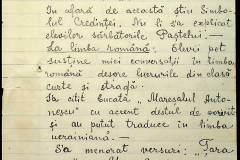 În afară de aceasta știu Simbo-
lul Credinței. Nu li s'a explicat
elevilor sărbătorile Paștelui.—
La limba română: Elevii pot
susține mici conversații în limba
română despre lucrurile din clasă
curte și stradă.
S'a citit bucata, "Mareșalul Anto-
nescu" cu accent destul de dorit
și au putut traduce în limba
ucrainiană.
S'a memorat versuri: "Țara